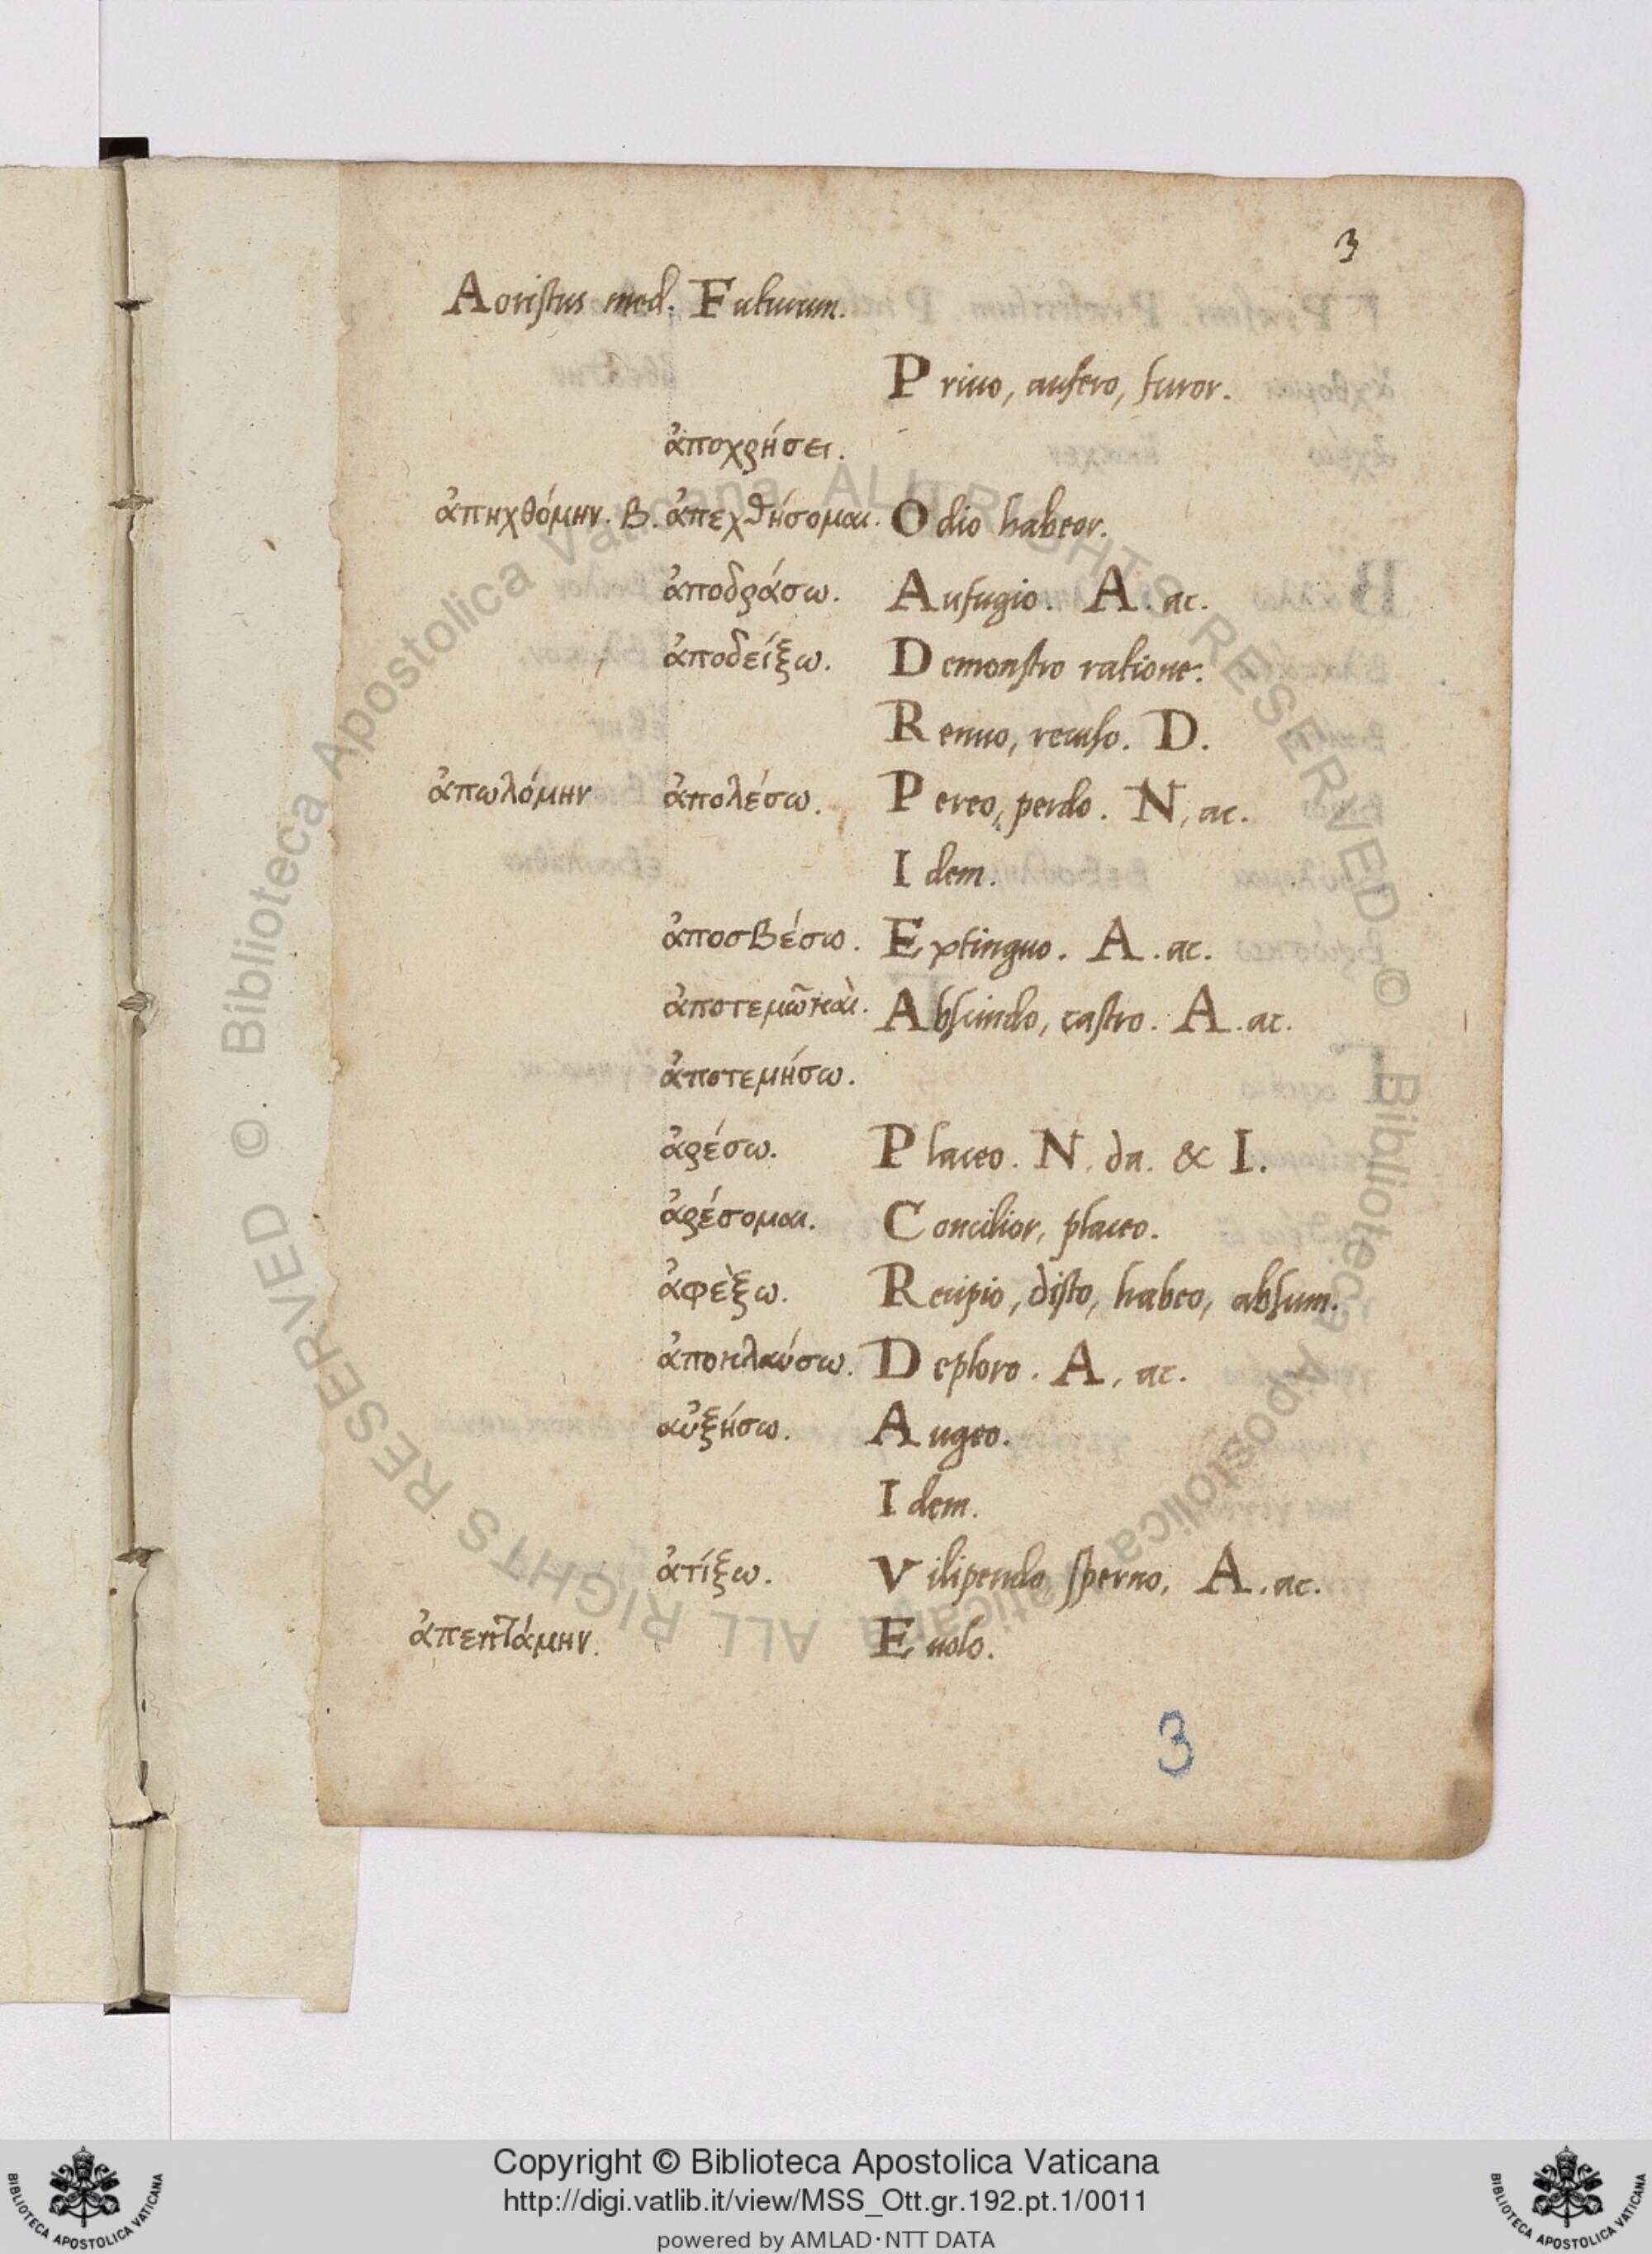 3
Aoristus med. Futurum.
Priuo, aufero, furor.
ἀποχρήσει.
ἀπηχθόμην. B. ἀπεχθήσομαι. Odio habeor.
ἀποδράσω. Aufugio. A. ac.
ἀποδείξω. Demonstro ratione.
Renuo, recuso. D.
ἀπωλόμην ἀπολέσω. Pereo, perdo. N. ac.
Idem.
ἀποσβέσω. Extinguo. A. ac.
ἀποτεμῶ καὶ. Abscindo, castro. A. ac.
ἀποτεμήσω.
ἀρέσω. Placeo. N. da. & I.
ἀρέσομαι. Concilior, placeo.
ἀφέξω. Recipio, disto, habeo, absum.
ἀποκλαύσω. Deploro. A. ac.
αὐξήσω. Augeo.
Idem.
ἀτίξω. Vilipendo, sperno, A. ac.
ἀπεπτάμην. Euolo.
3
© Biblioteca Apostolica Vaticana ALL RIGHTS RESERVED © Biblioteca Apostolica Vaticana ALL RIGHTS RESERVED
Copyright © Biblioteca Apostolica Vaticana
http://digi.vatlib.it/view/MSS_Ott.gr.192.pt.1/0011
powered by AMLAD·NTT DATA
BIBLIOTECA APOSTOLICA VATICANA
BIBLIOTECA APOSTOLICA VATICANA